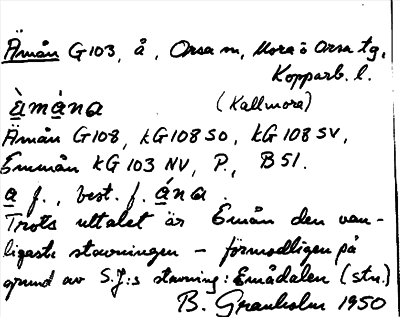 Ämån G103, å, Orsa sn, Mora ö Orsa tg,
Kopparb. l.
(Kallmora)
àmána
Ämån G108, kG108SO, kG108SV,
Emmån kG103NV, P., B51.
a f., best. f. ána.
Trots uttalet är Emån den van-
ligaste stavningen – förmodligen på
grund av S.J:s stavning: Emådalen (stn.)
B. Granholm 1950